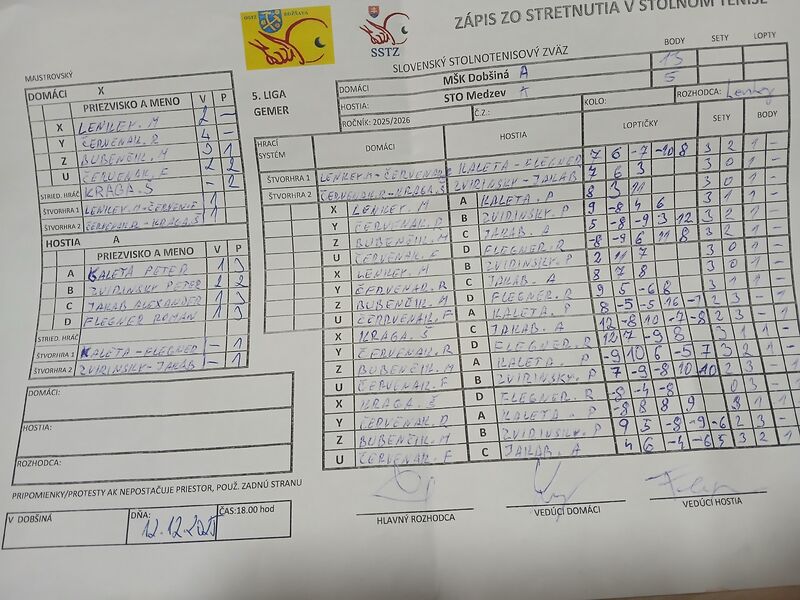 ZÁPIS ZO STRETNUTIA V STOLNOM TENISE
OSTZ ROŽŇAVA
SSTZ
SLOVENSKÝ STOLNOTENISOVÝ ZVÄZ
BODY SETY LOPTY
5. LIGA
GEMER
DOMÁCI: MŠK Dobšiná A 13
HOSTIA: STO Medzev A 5
ROČNÍK: 2025/2026 Č.Z.: KOLO: ROZHODCA: Lenkey
MAJSTROVSKÝ
DOMÁCI X
PRIEZVISKO A MENO V P
X LENKEY. M 2 –
Y ČERVENAK. R 4 –
Z BUBENČIK. M 3 1
U ČERVENAK. F 2 2
STRIED. HRÁČ KRAGA. Š – 2
ŠTVORHRA 1 LENKEY.M-ČERVEN.F 1
ŠTVORHRA 2 ČERVENAK.R-KRAGA.Š 1
HOSTIA A
PRIEZVISKO A MENO V P
A KALETA PETER 1 3
B ZVIRINSKY PETER 2 2
C JAKAB ALEXANDER 1 3
D FLEGNER ROMAN 1 3
STRIED. HRÁČ
ŠTVORHRA 1 KALETA-FLEGNER – 1
ŠTVORHRA 2 ZVIRINSKY-JAKAB – 1
DOMÁCI:
HOSTIA:
ROZHODCA:
PRIPOMIENKY/PROTESTY AK NEPOSTAČUJE PRIESTOR, POUŽ. ZADNÚ STRANU
V DOBŠINÁ DŇA: 12.12.2025 ČAS:18.00 hod
HRACÍ SYSTÉM DOMÁCI HOSTIA LOPTIČKY SETY BODY
ŠTVORHRA 1 LENKEY.M-ČERVENAK.F KALETA-FLEGNER 7 6 -7 -10 8 3 2 1 –
ŠTVORHRA 2 ČERVENAK.R-KRAGA.Š ZVIRINSKY-JAKAB 7 6 3 3 0 1 –
X LENKEY. M A KALETA. P 8 3 11 3 0 1 –
Y ČERVENAK. R B ZVIRINSKY. P 9 -8 4 6 3 1 1 –
Z BUBENČIK. M C JAKAB. A 5 -8 -9 3 12 3 2 1 –
U ČERVENAK. F D FLEGNER. R -8 -9 6 11 8 3 2 1 –
X LENKEY. M B ZVIRINSKY. P 2 11 7 3 0 1 –
Y ČERVENAK. R C JAKAB. A 8 7 8 3 0 1 –
Z BUBENČIK. M D FLEGNER. R 9 5 -6 8 3 1 1 –
U ČERVENAK. F A KALETA. P 8 -5 -5 16 -7 2 3 – 1
X KRAGA. Š C JAKAB. A 12 -8 10 -7 -8 2 3 – 1
Y ČERVENAK. R D FLEGNER. R 12 7 -9 8 3 1 1 –
Z BUBENČIK. M A KALETA. P -9 10 6 -5 7 3 2 1 –
U ČERVENAK. F B ZVIRINSKY. P 7 -9 -8 10 -10 2 3 – 1
X KRAGA. Š D FLEGNER. R -8 -4 -8 0 3 – 1
Y ČERVENAK. R A KALETA. P -8 8 8 9 3 1 1 –
Z BUBENČIK. M B ZVIRINSKY. P 9 5 -8 -9 -6 2 3 – 1
U ČERVENAK. F C JAKAB. A 4 6 -4 -6 5 3 2 1 –
HLAVNÝ ROZHODCA VEDÚCI DOMÁCI VEDÚCI HOSTIA